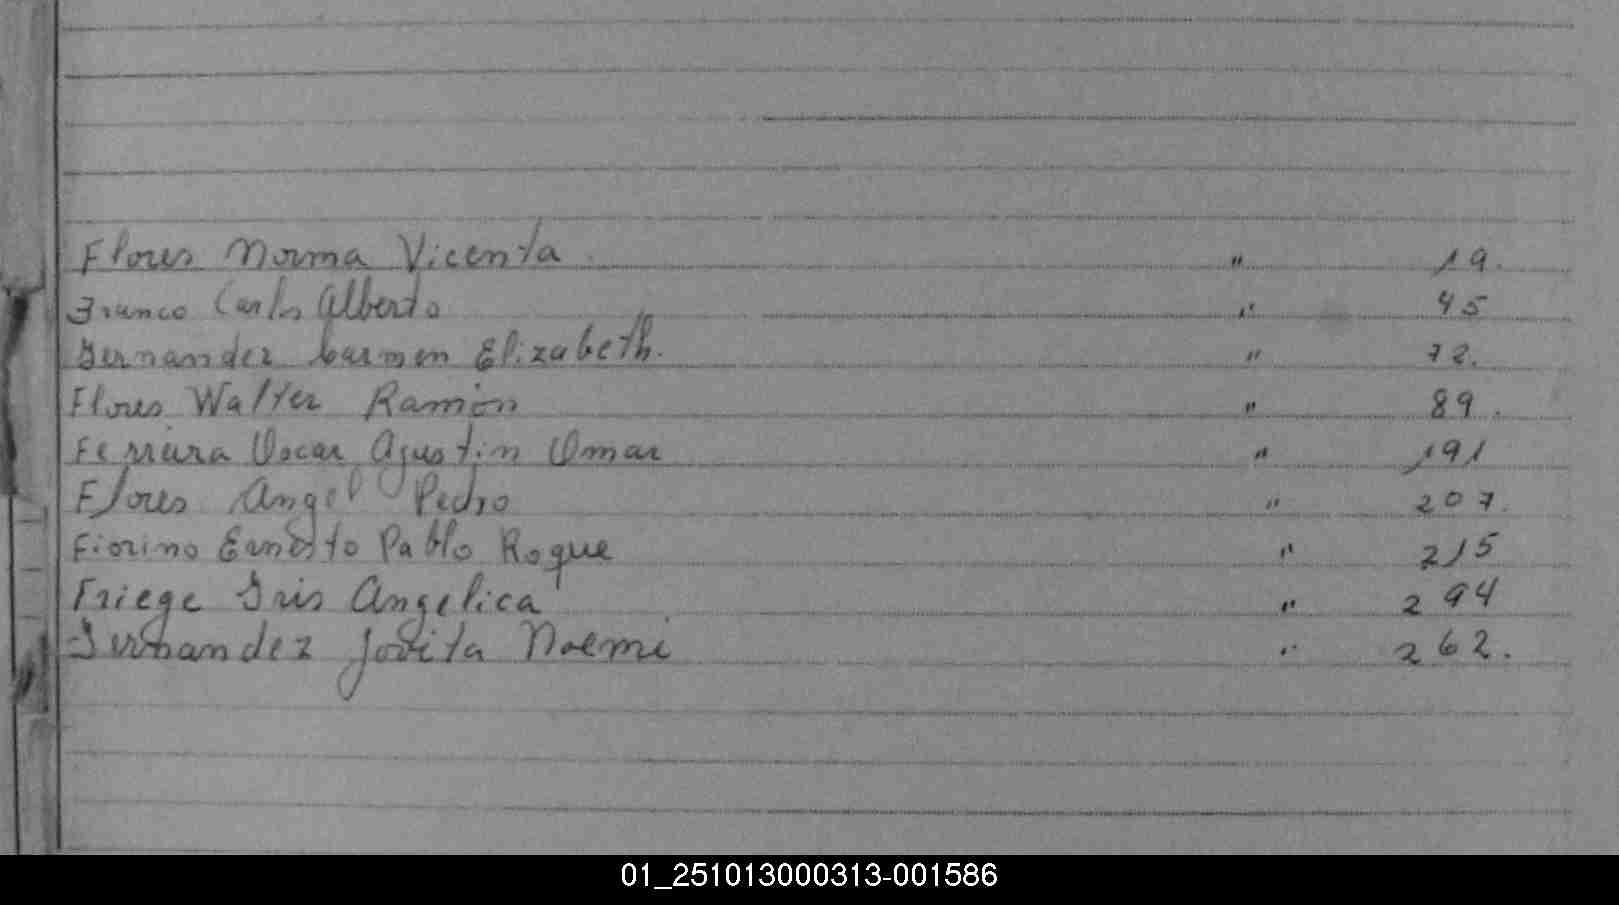 Flores Norma Vicenta " 19.
Franco Carlos Alberto " 45
Fernandez Carmen Elizabeth. " 72.
Flores Walter Ramón " 89.
Ferrara Oscar Agustin Omar " 191
Flores Angel Pedro " 207.
Fiorino Ernesto Pablo Roque " 215
Friege Iris Angelica " 294
Fernandez Jovita Noemi " 262.
01_251013000313-001586